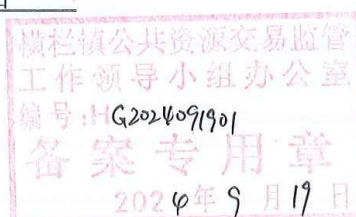 横栏镇公共资源交易监管
工作领导小组办公室
编号:HG2024091901
备案专用章
2024年9月19日